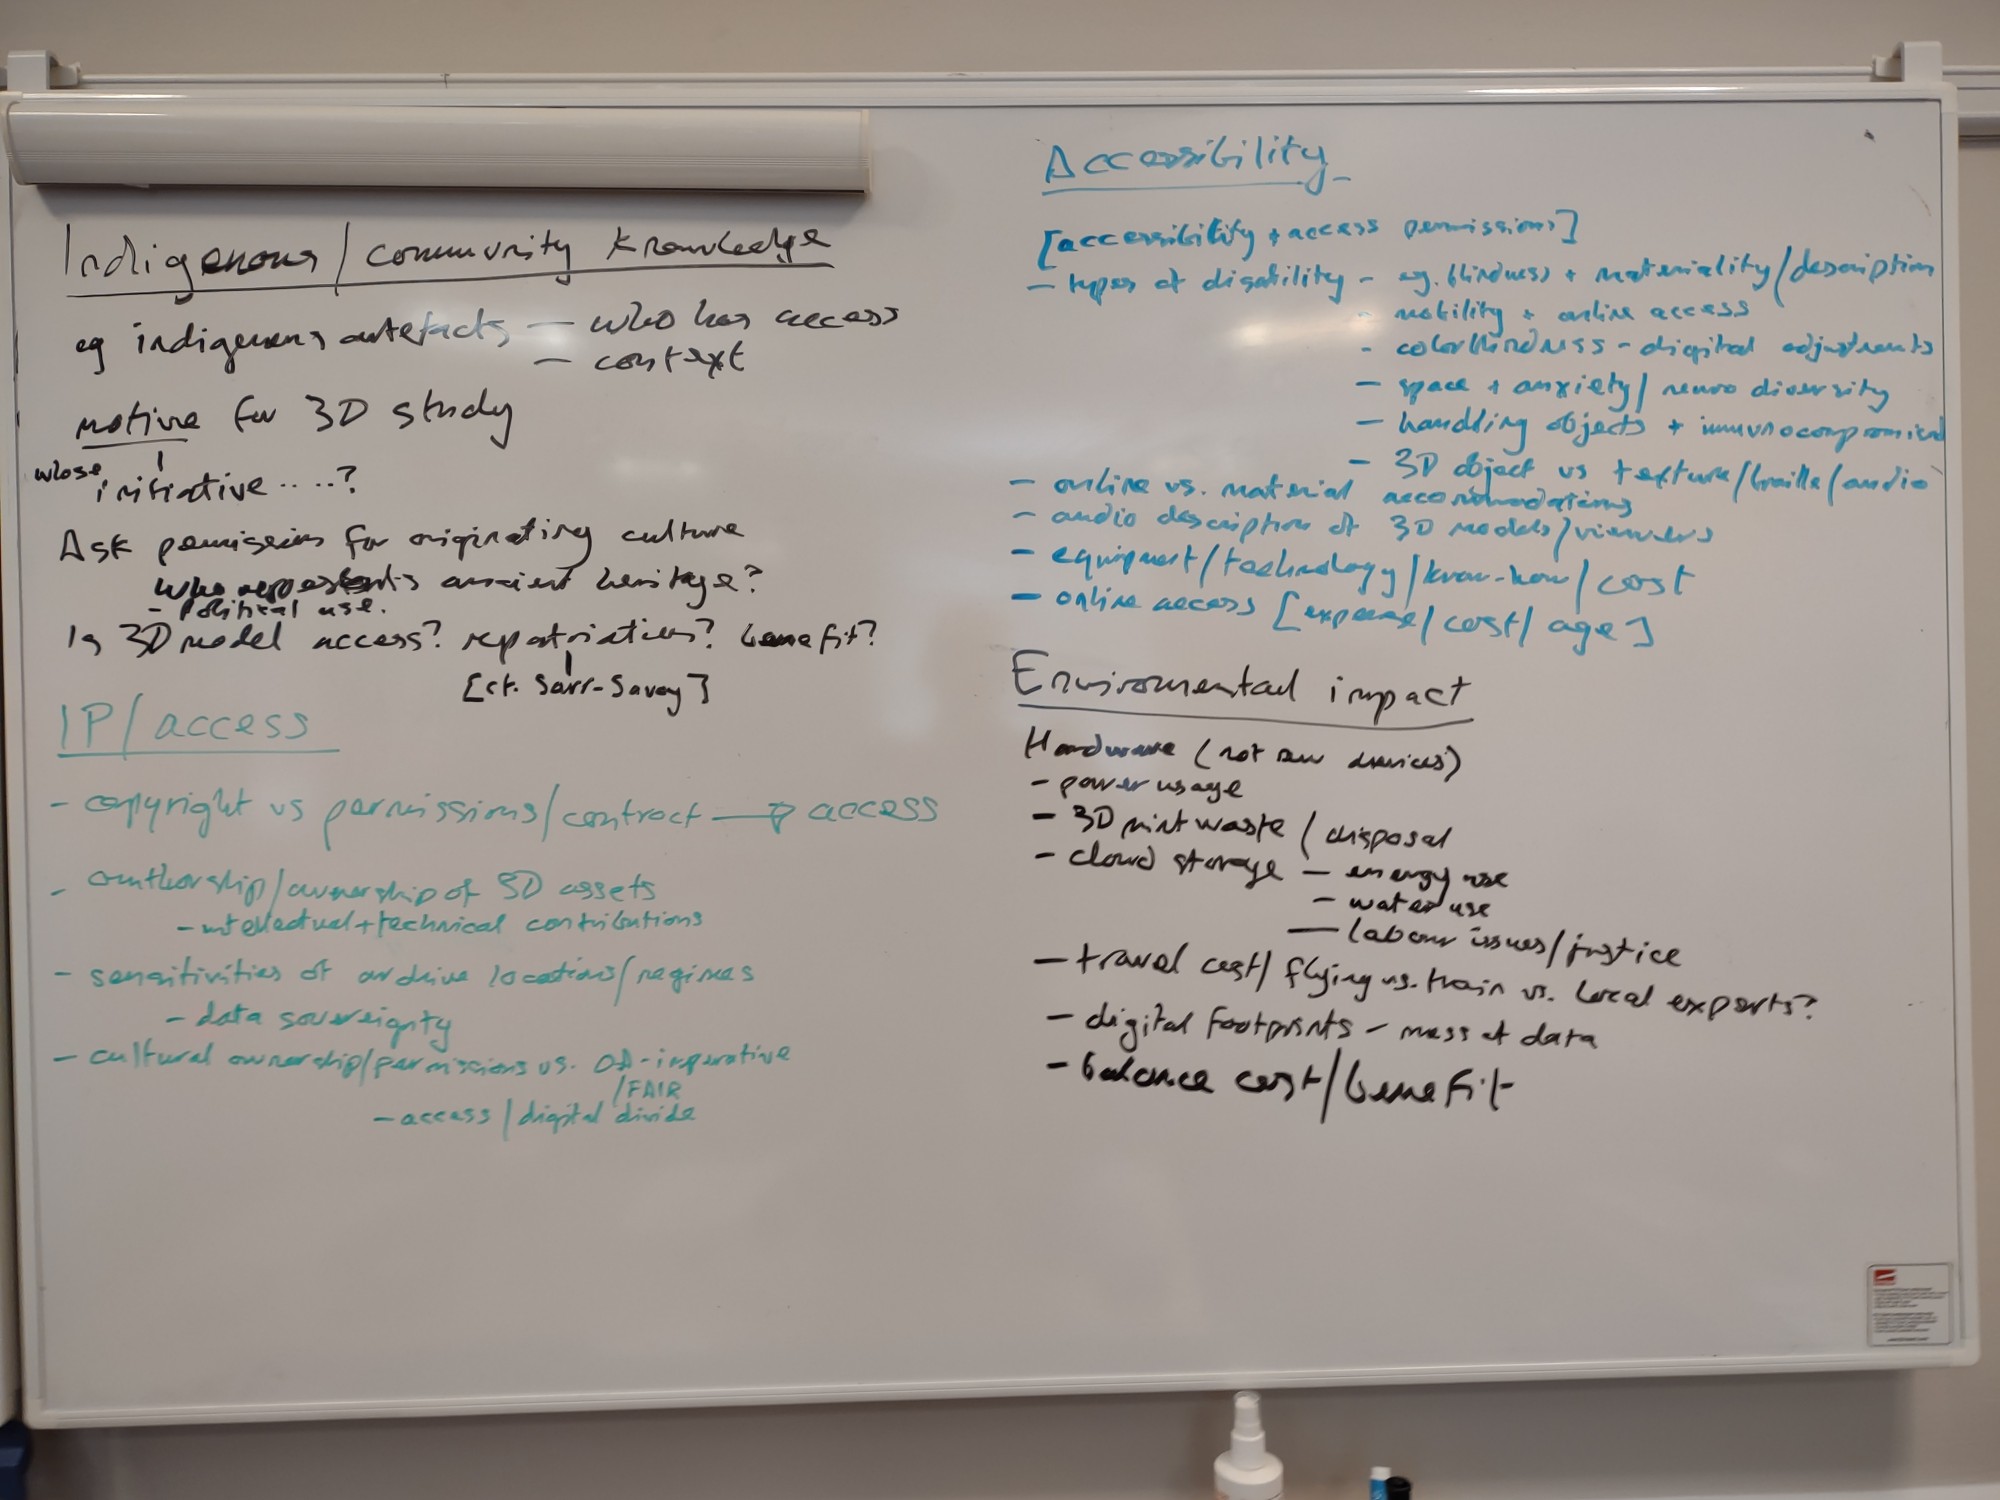 Indigenous/community knowledge
eg indigenous artefacts — who has access
— context
motive for 3D study
whose initiative ....?
Ask permission for originating culture
who represents ancient heritage?
- Political use.
Is 3D model access? repatriation? benefit?
[cf. Sarr-Savoy]
IP/access
- copyright vs permissions/contract → access
- authorship/ownership of 3D assets
- intellectual + technical contributions
- sensitivities of archive locations/regimes
- data sovereignty
- cultural ownership/permissions vs. OA-imperative
/FAIR
- access/digital divide
Accessibility
[accessibility + access permissions]
- types of disability - eg. blindness + materiality/description
- mobility + online access
- colorblindness - digital adjustments
- space + anxiety/neurodiversity
- handling objects + immunocompromised
- 3D object vs texture/braille/audio
- online vs. material accommodations
- audio description of 3D models/viewers
- equipment/technology/know-how/cost
- online access [expense/cost/age]
Environmental impact
Hardware (not new devices)
- power usage
- 3D print waste/disposal
- cloud storage - energy use
- water use
- labour issues/justice
- travel cost/flying vs. train vs. local experts?
- digital footprints - mass of data
- balance cost/benefit